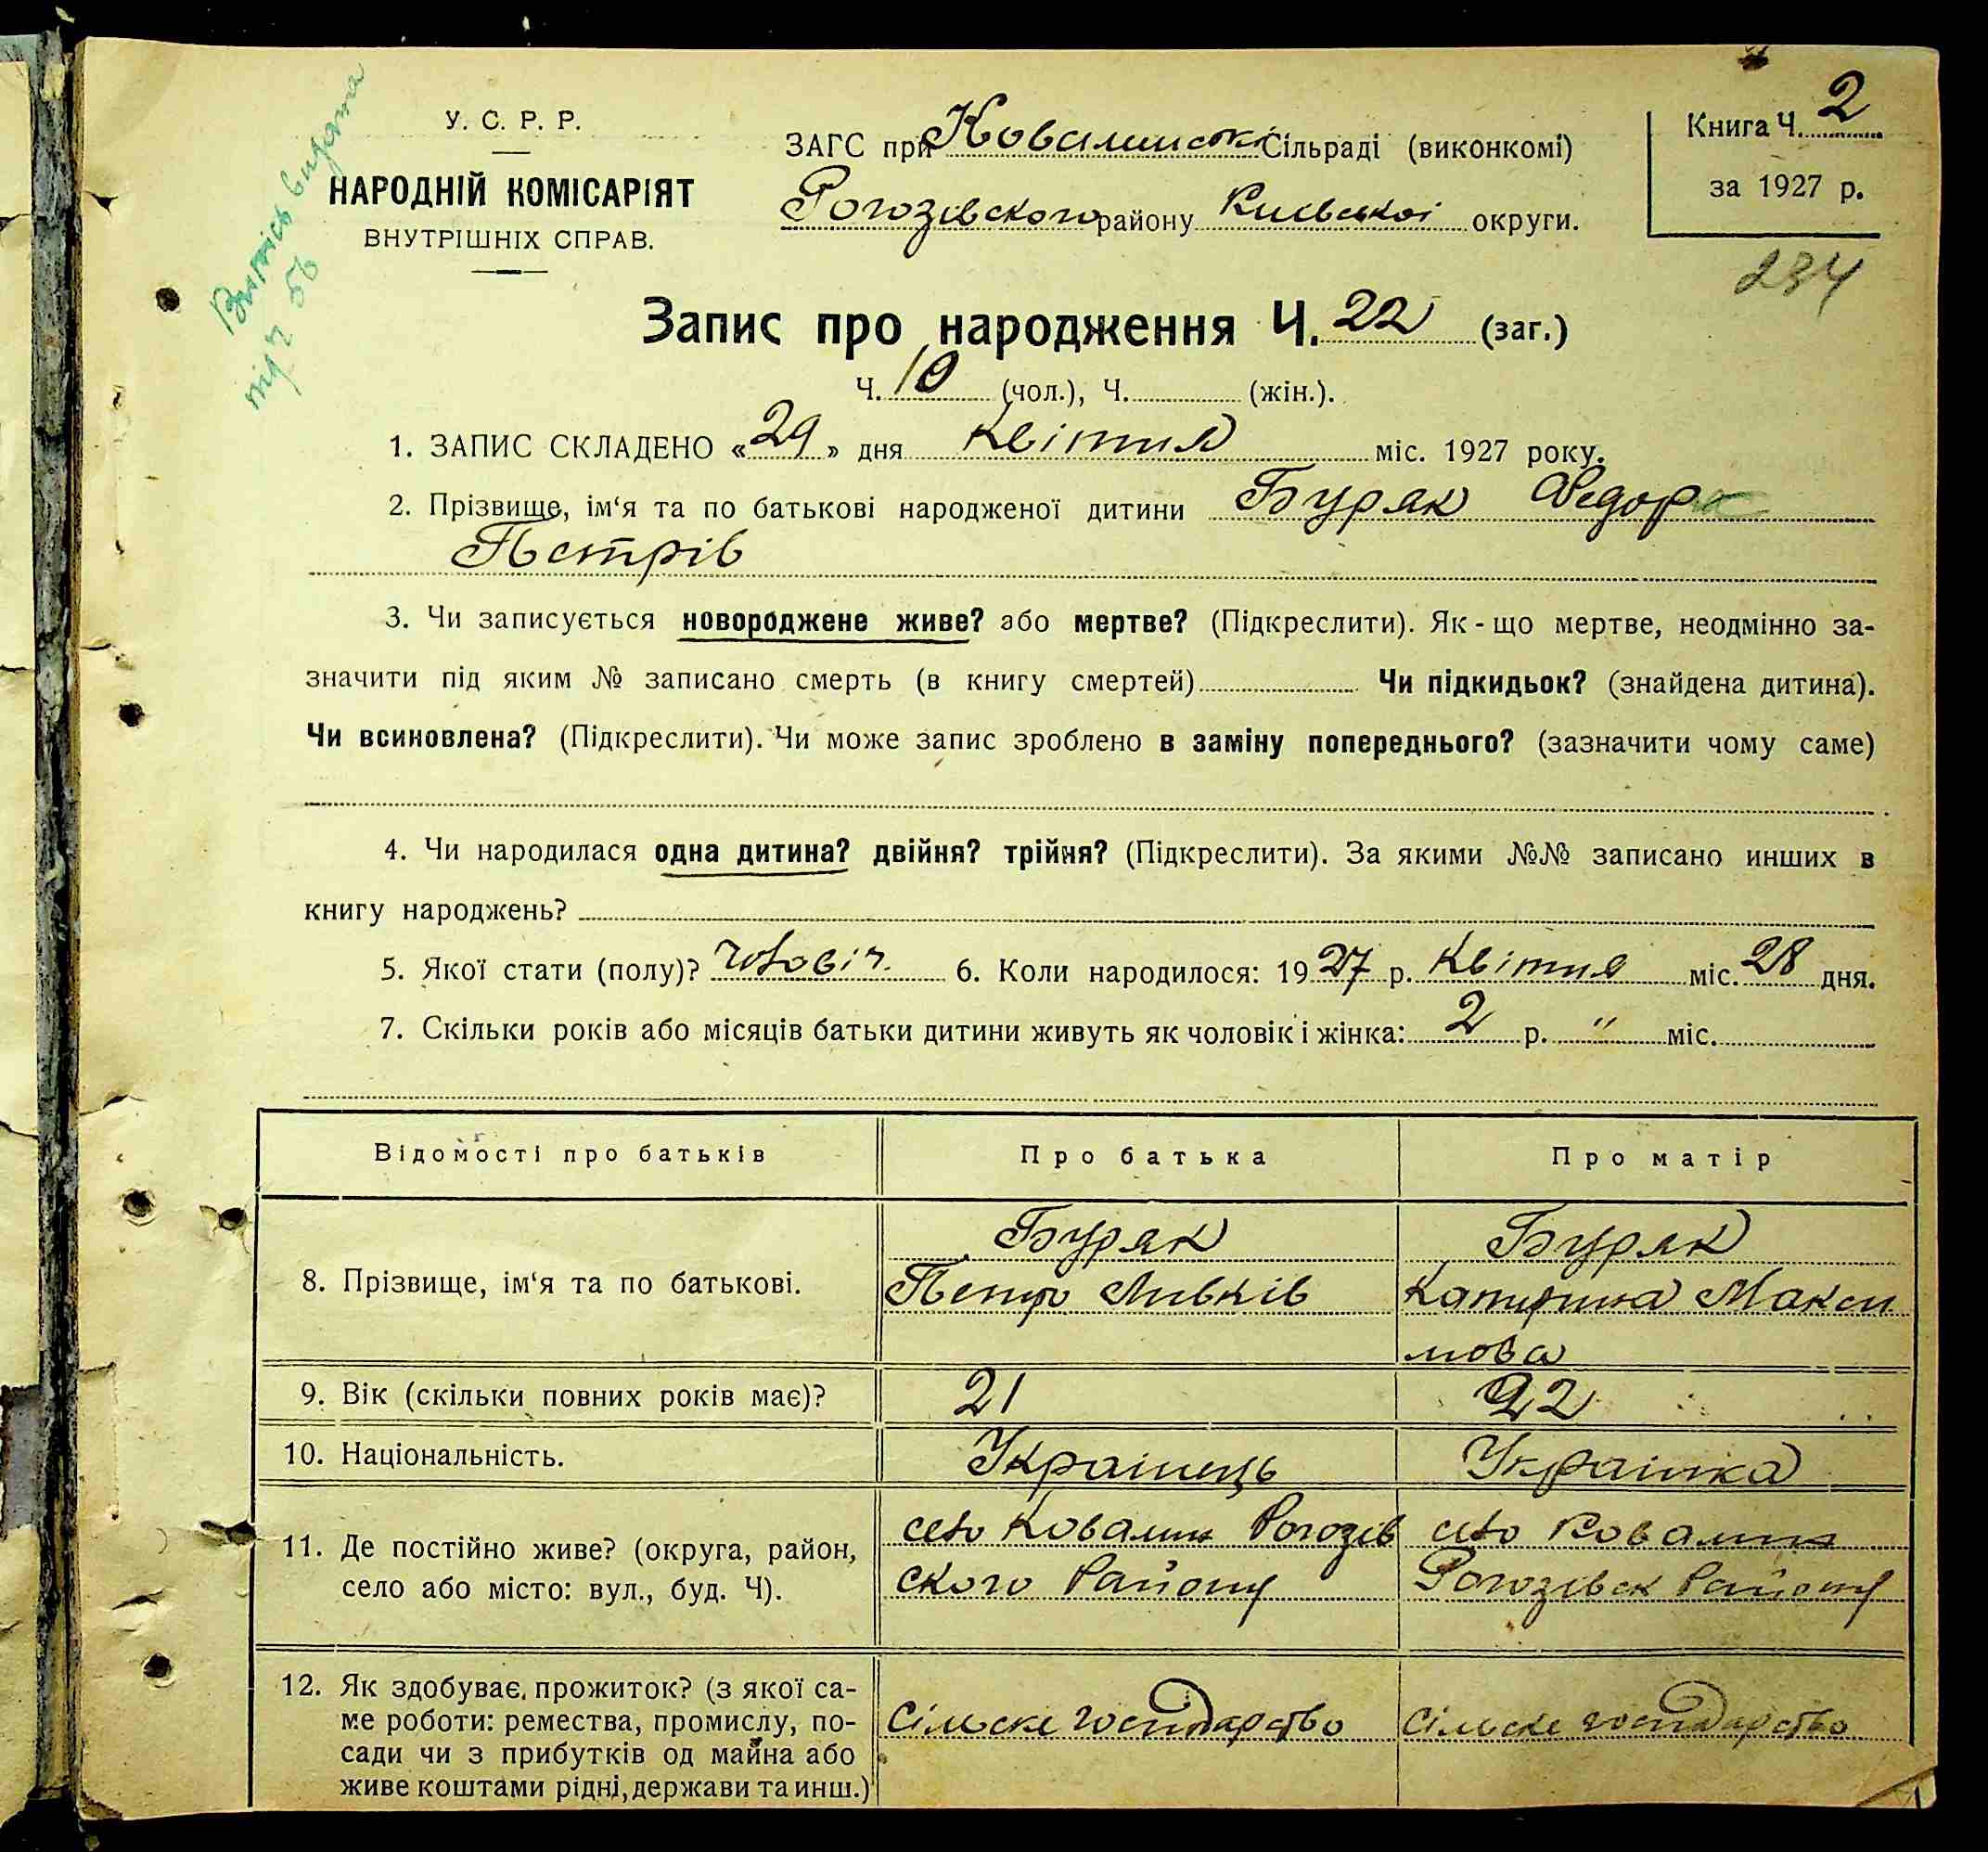 Виписісь видана
під ч 56
У. С. Р. Р.
НАРОДНІЙ КОМІСАРІЯТ
ВНУТРІШНІХ СПРАВ.
ЗАГС при Ковалинськ Сільраді (виконкомі)
Рогозівского району Київської округи.
Книга Ч. 2
за 1927 р.
234
Запис про народження Ч. 22 (заг.)
Ч. 10 (чол.), Ч. (жін.).
1. ЗАПИС СКЛАДЕНО «29» дня Квітня міс. 1927 року.
2. Прізвище, ім‘я та по батькові народженої дитини Буряк Федор
Петрів
3. Чи записується новороджене живе? або мертве? (Підкреслити). Як-що мертве, неодмінно за-
значити під яким № записано смерть (в книгу смертей) Чи підкидьок? (знайдена дитина).
Чи всиновлена? (Підкреслити). Чи може запис зроблено в заміну попереднього? (зазначити чому саме)
4. Чи народилася одна дитина? двійня? трійня? (Підкреслити). За якими №№ записано инших в
книгу народжень?
5. Якої стати (полу)? чоловіч. 6. Коли народилося: 1927 р. Квітня міс. 28 дня.
7. Скільки років або місяців батьки дитини живуть як чоловік і жінка: 2 р. " міс.
Відомості про батьків Про батька Про матір
8. Прізвище, ім‘я та по батькові.
Буряк
Петро Ливків
Буряк
Катирина Макси
мова
9. Вік (скільки повних років має)? 21 22
10. Національність. Украінець Украінка
11. Де постійно живе? (округа, район,
село або місто: вул., буд. Ч).
село Ковалин Рогозів
ского Району
село Ковалин
Рогозівск Району
12. Як здобуває прожиток? (з якої са-
ме роботи: ремества, промислу, по-
сади чи з прибутків од майна або
живе коштами рідні, держави та инш.)
Сільске господарство
Сільске господарство